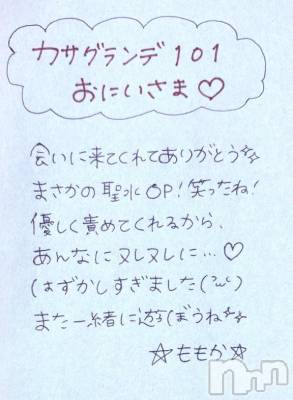 カサグランデ101
おにいさま♡
会いに来てくれてありがとう☆
まさかの聖水OP!笑ったね!
優しく責めてくれるから、
あんなにヌレヌレに…♡
はずかしすぎました(/ω\)
また一緒に遊ぼうね☆
☆ももか☆
nn